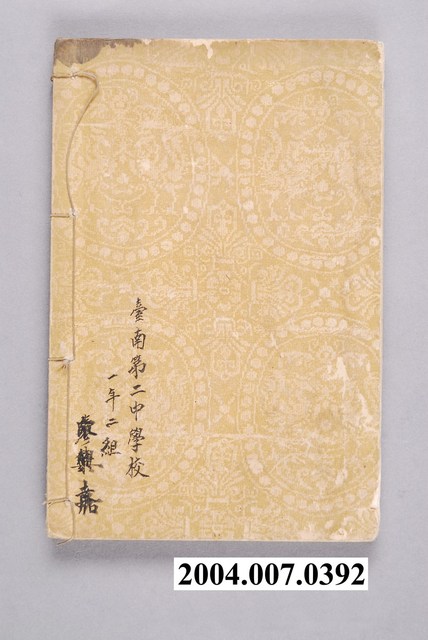 臺南第二中學校
一年二組
2004.007.0392